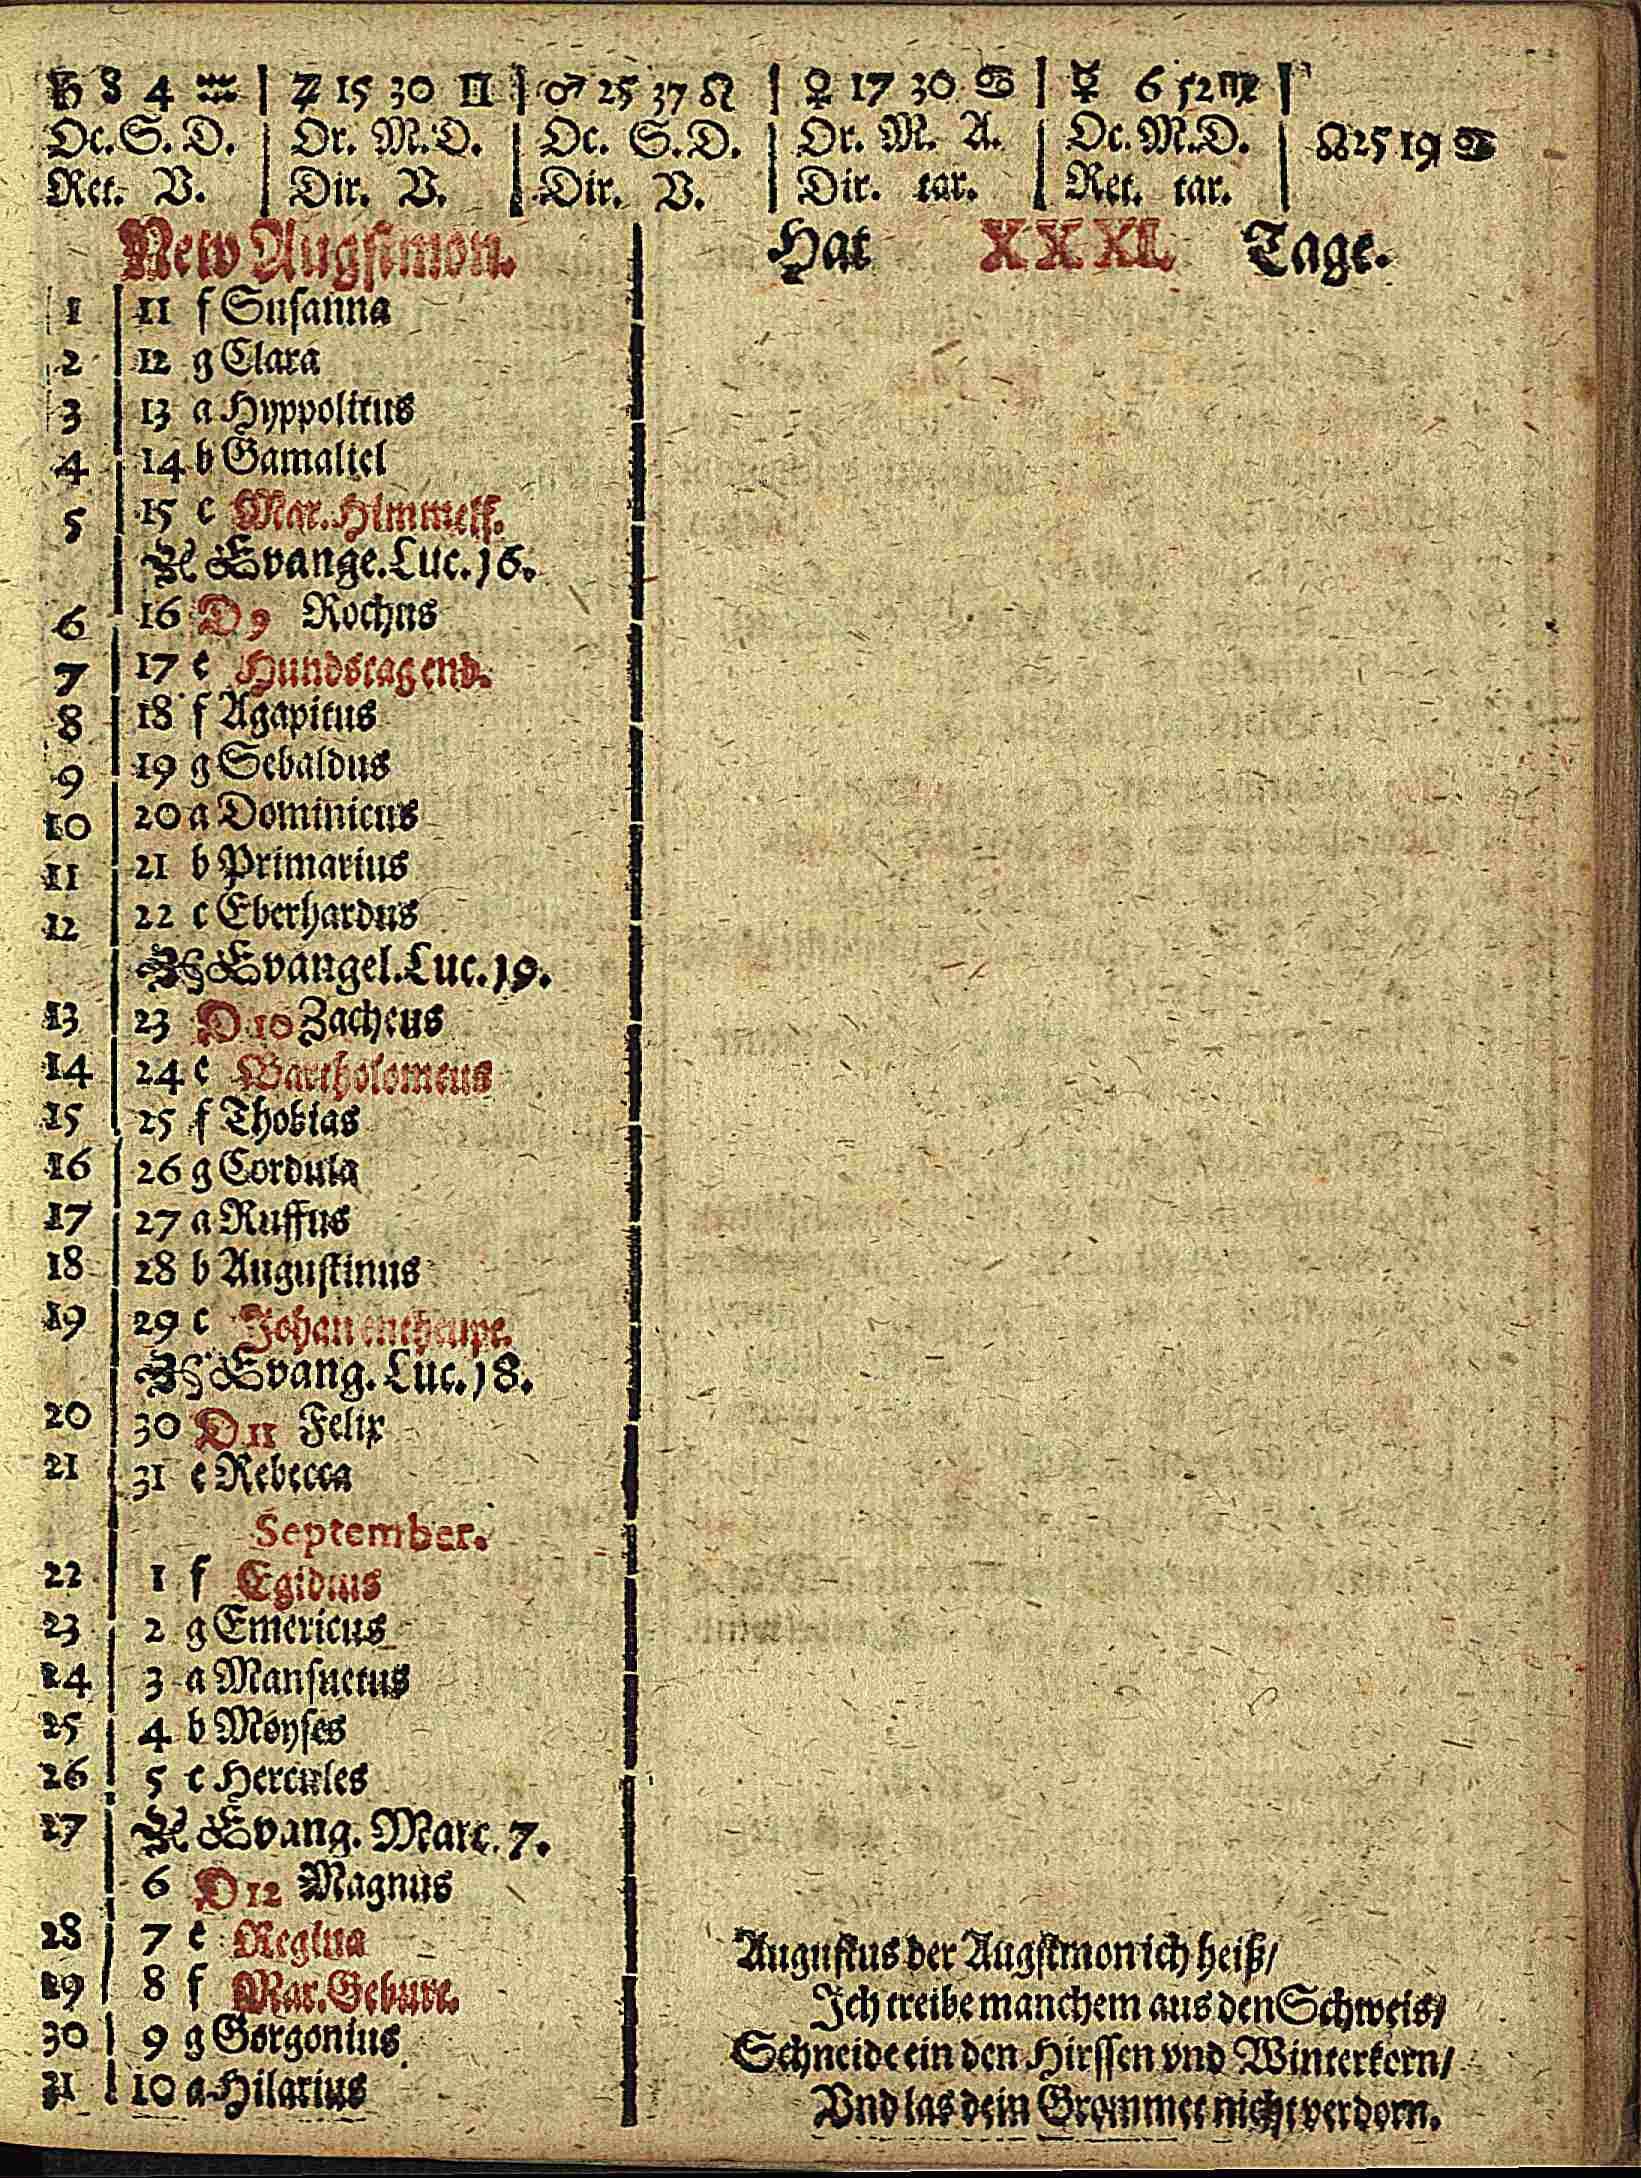 ♄ 8 4 ♒ | ♃ 15 30 ♊ | ♂ 25 37 ♌ | ♀ 17 30 ♋ | ☿ 6 52 ♍ |
Oc. S. D. | Or. M. D. | Oc. S. D. | Or. M. A. | Oc. M. D. | ☊ 25 19 ♋
Ret. V. | Dir. V. | Dir. V. | Dir. tar. | Ret. tar. |
New Augstmon. Hat XXXI. Tage.
1 11 f Susanna
2 12 g Clara
3 13 a Hyppolitus
4 14 b Gamaliel
5 15 c Mar. Himmelf.
Evange. Luc. 16.
6 16 D 9 Rochus
7 17 e Hundstag end.
8 18 f Agapitus
9 19 g Sebaldus
10 20 a Dominicus
11 21 b Primarius
12 22 c Eberhardus
Evangel. Luc. 19.
13 23 D 10 Zacheus
14 24 e Bartholomeus
15 25 f Thobias
16 26 g Cordula
17 27 a Ruffus
18 28 b Augustinus
19 29 c Johan entheupt.
Evang. Luc. 18.
20 30 D 11 Felix
21 31 e Rebecca
September.
22 1 f Egidius
23 2 g Emericus
24 3 a Mansuetus
25 4 b Moyses
26 5 c Hercules
27 Evang. Marc. 7.
6 D 12 Magnus
28 7 e Regina
29 8 f Mar. Geburt.
30 9 g Gorgonius
31 10 a Hilarius
Augustus der Augstmon ich heiß/
Ich treibe manchem aus den Schweis/
Schneide ein den Hirssen vnd Winterkorn/
Vnd las dein Grommet nicht verdorn.